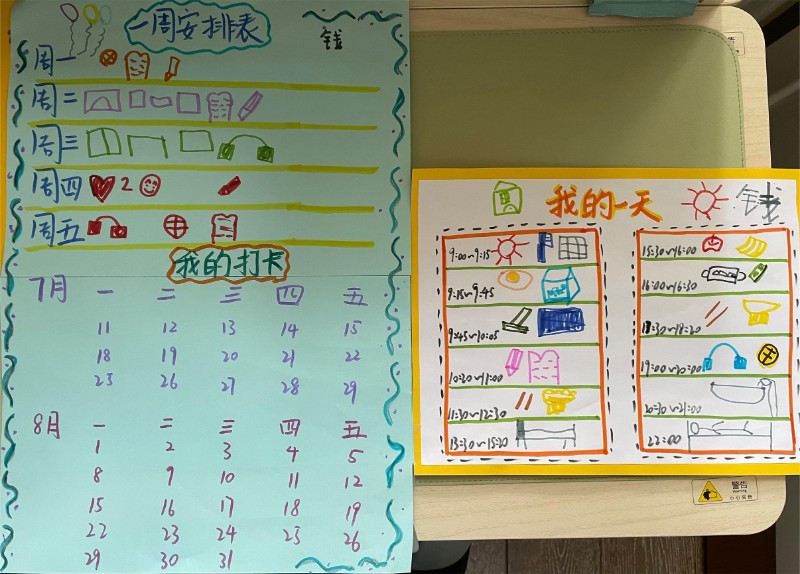 一周安排表
钱
周一
周二
周三
周四 2
周五
我的打卡
7月 一 二 三 四 五
11 12 13 14 15
18 19 20 21 22
25 26 27 28 29
8月 一 二 三 四 五
1 2 3 4 5
8 9 10 11 12
15 16 17 18 19
22 23 24 25 26
29 30 31
我的一天 钱
9:00~9:15
9:15~9:45
9:45~10:05
10:30~11:00
11:30~12:30
13:30~15:30
15:30~16:00
16:00~16:30
19:00~20:00
20:30~21:00
22:00
警告
警告